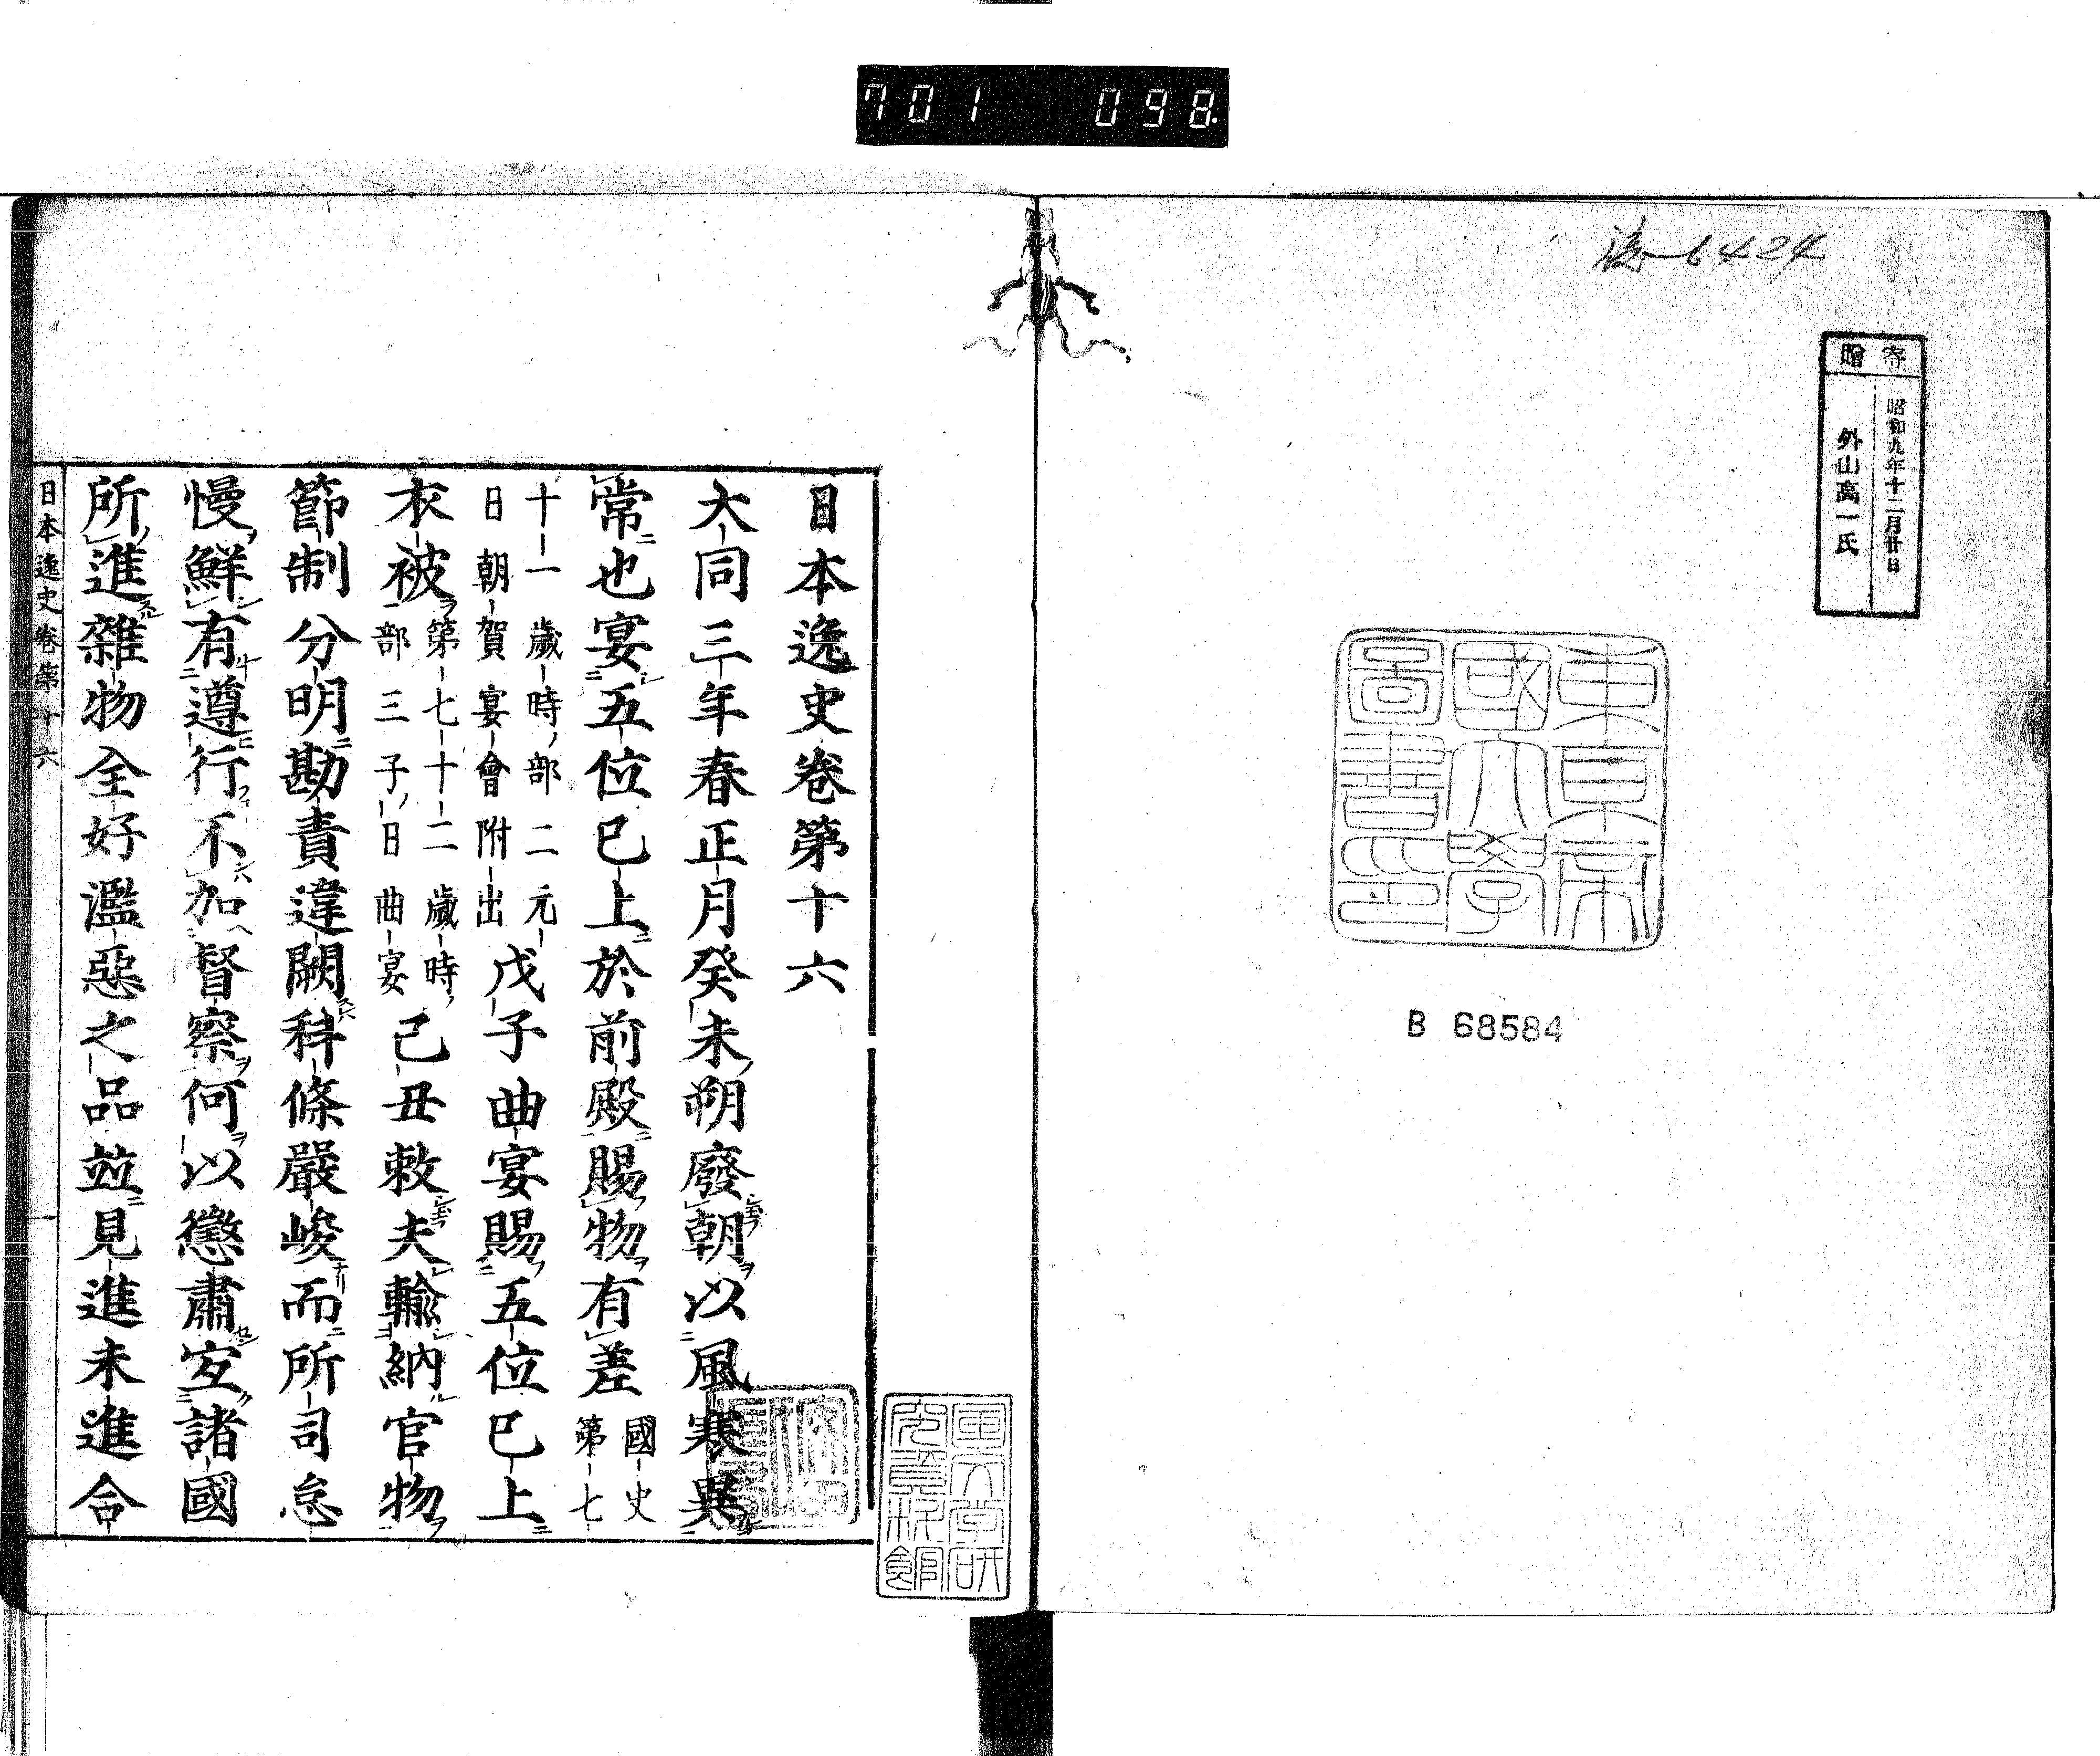 701 098
6424
寄贈
昭和九年十二月廿日
外山高一氏
東京帝
國大學
圖書印
B 68584
日本逸史卷第十六
大同三年春正月癸未朔廢朝以風寒異
常也宴五位已上於前殿賜物有差國史第七
十一歲時部二元日朝賀宴會附出戊子曲宴賜五位已上
衣被第七十二歲時部三子日曲宴己丑敕夫輸納官物
節制分明勘責違闕科條嚴峻而所司怠
慢鮮有遵行不加督察何以懲肅宜諸國
所進雜物全好濫惡之品並見進未進合
日本逸史卷第十六 一